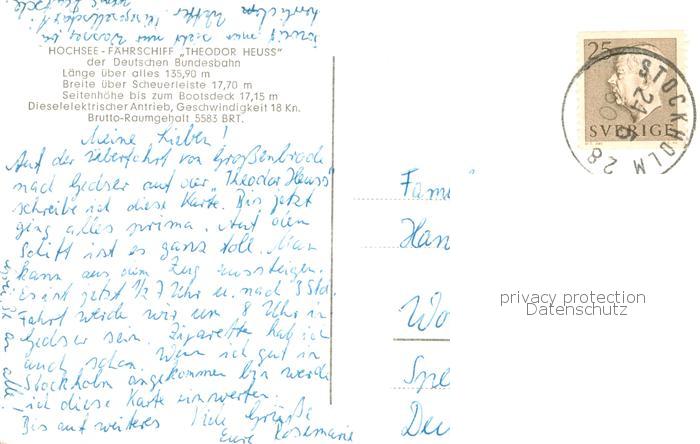 HOCHSEE-FÄHRSCHIFF „THEODOR HEUSS“
der Deutschen Bundesbahn
Länge über alles 135,90 m
Breite über Scheuerleiste 17,70 m
Seitenhöhe bis zum Bootsdeck 17,15 m
Dieselelektrischer Antrieb, Geschwindigkeit 18 Kn.
Brutto-Raumgehalt 5583 BRT.
Meine Lieben!
Auf der Überfahrt von Großenbrode
nach Gedser auf der „Theodor Heuss“
schreibe ich diese Karte. Bis jetzt
ging alles prima. Auf dem
Schiff ist es ganz toll. Man
kann aus dem Zug aussteigen.
Es ist jetzt 1/2 7 Uhr u. nach 3 Std.
Fahrt werde wir um 8 Uhr in
Gedser sein. Zigarette hab ich
auch schon. Wenn ich gut in
Stockholm angekommen bin werde
ich diese Karte einwerfen.
Bis auf weiteres Viele Grüße
Eure Rosemarie
an alle
25
SVERIGE
STOCKHOLM 28
Fam
Han
Wo
Spe
Deu
privacy protection
Datenschutz